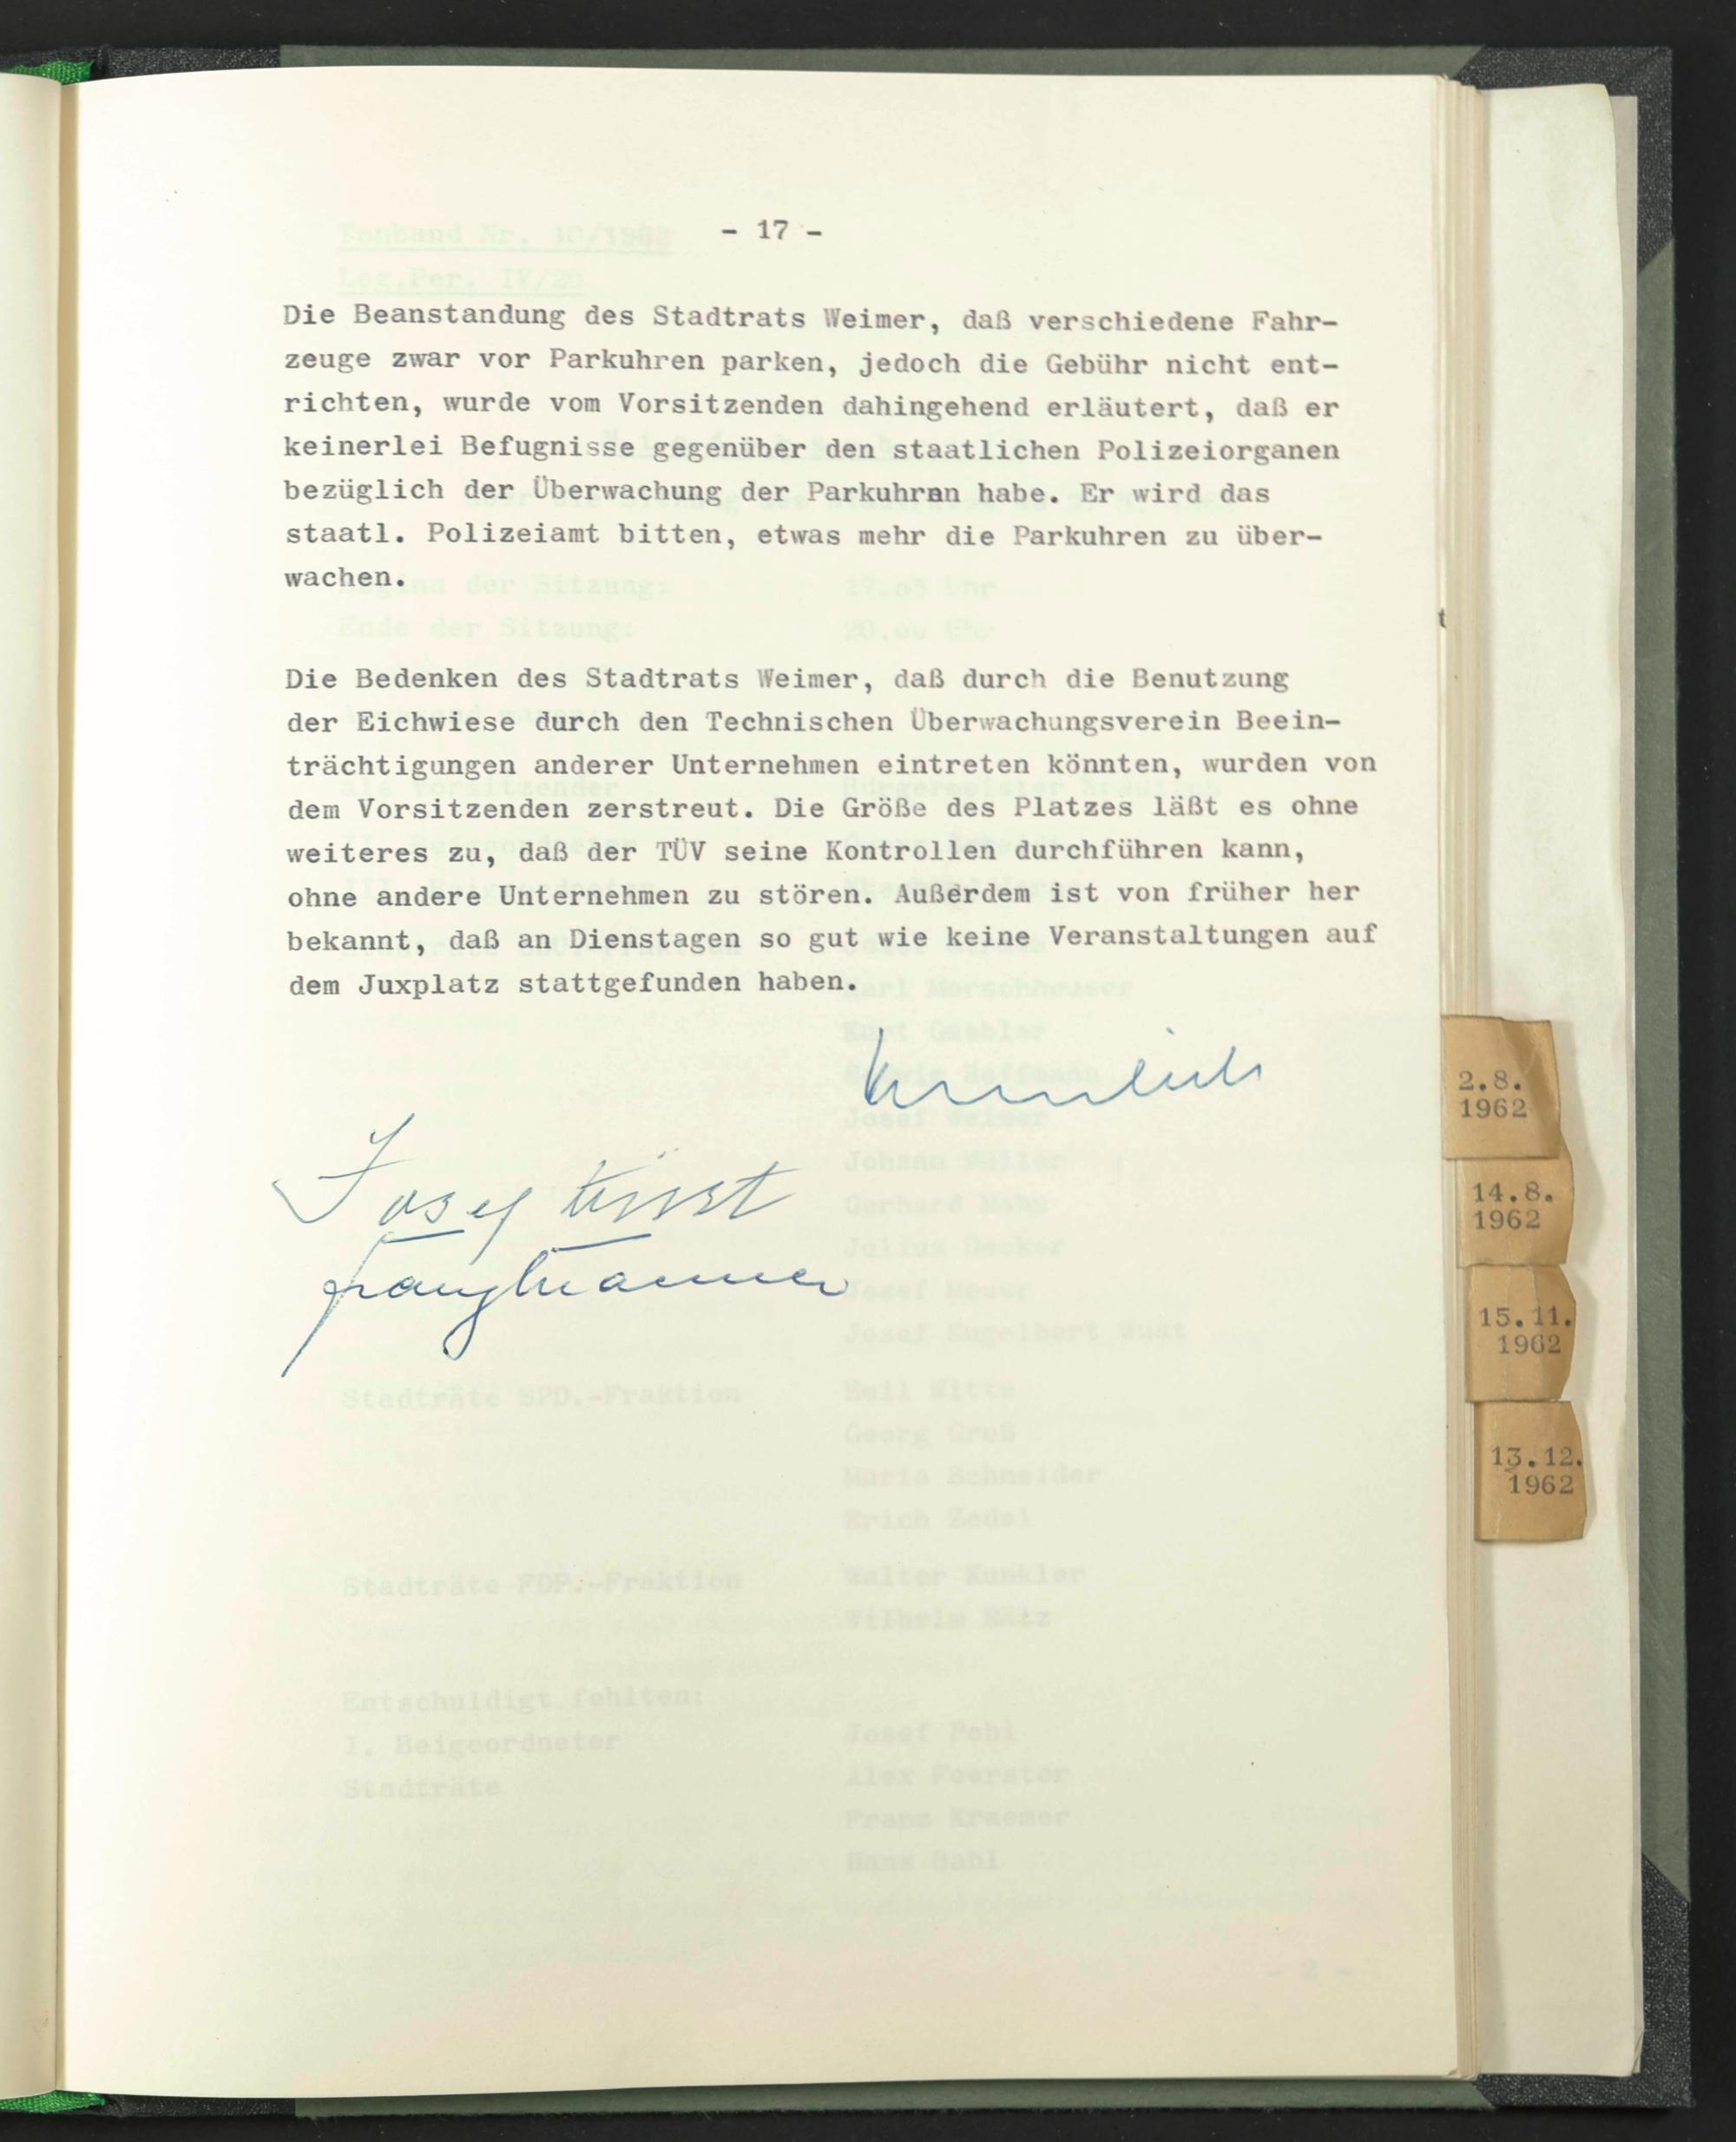 - 17 -
Die Beanstandung des Stadtrats Weimer, daß verschiedene Fahr-
zeuge zwar vor Parkuhren parken, jedoch die Gebühr nicht ent-
richten, wurde vom Vorsitzenden dahingehend erläutert, daß er
keinerlei Befugnisse gegenüber den staatlichen Polizeiorganen
bezüglich der Überwachung der Parkuhren habe. Er wird das
staatl. Polizeiamt bitten, etwas mehr die Parkuhren zu über-
wachen.
Die Bedenken des Stadtrats Weimer, daß durch die Benutzung
der Eichwiese durch den Technischen Überwachungsverein Beein-
trächtigungen anderer Unternehmen eintreten könnten, wurden von
dem Vorsitzenden zerstreut. Die Größe des Platzes läßt es ohne
weiteres zu, daß der TÜV seine Kontrollen durchführen kann,
ohne andere Unternehmen zu stören. Außerdem ist von früher her
bekannt, daß an Dienstagen so gut wie keine Veranstaltungen auf
dem Juxplatz stattgefunden haben.
Josef
2.8.
1962
14.8.
1962
15.11.
1962
13.12.
1962